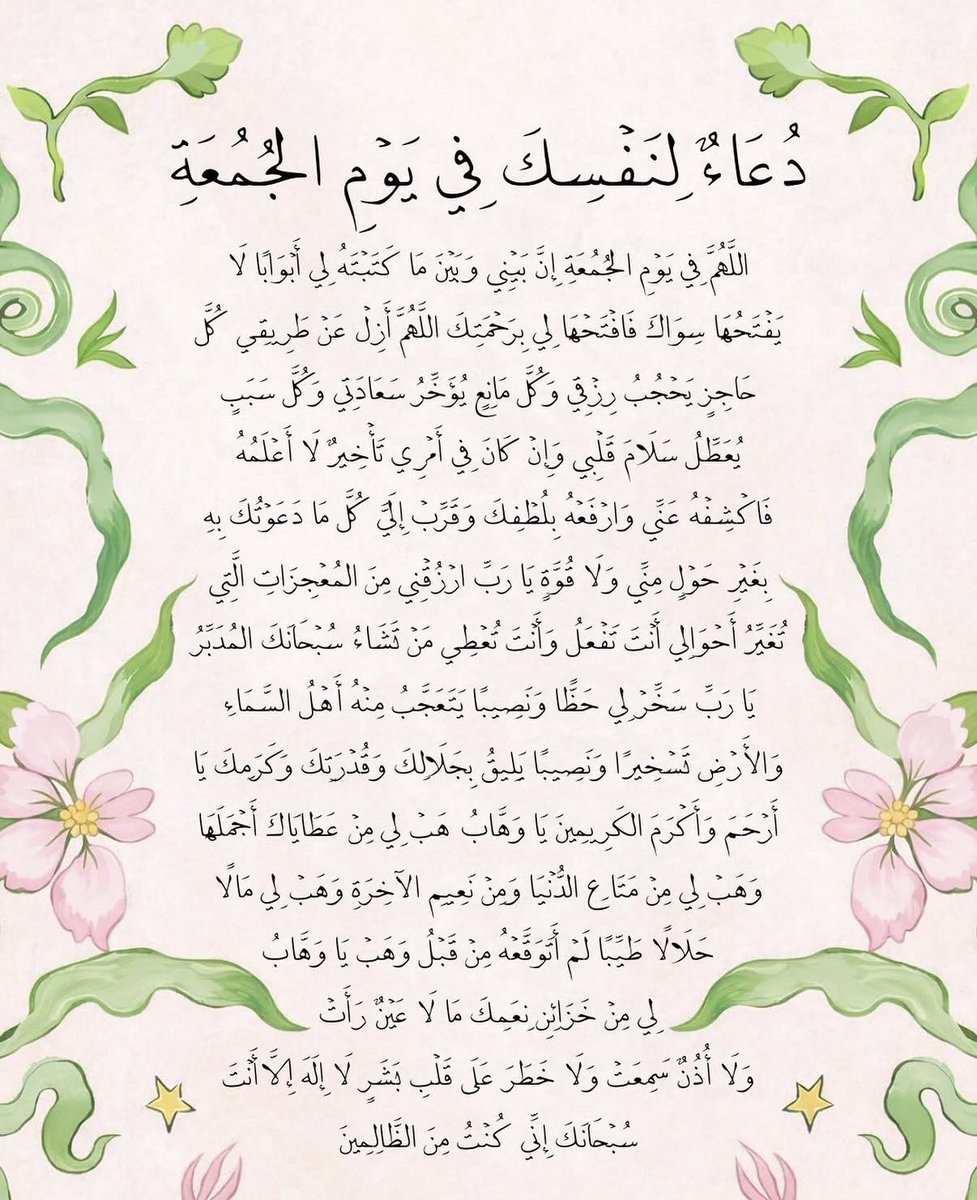 دُعَاءٌ لِنَفْسِكَ فِي يَوْمِ الجُمُعَةِ
اللَّهُمَّ فِي يَوْمِ الجُمُعَةِ إِنَّ بَيْنِي وَبَيْنَ مَا كَتَبْتَهُ لِي أَبْوَابًا لَا
يَفْتَحُهَا سِوَاكَ فَافْتَحْهَا لِي بِرَحْمَتِكَ اللَّهُمَّ أَزِلْ عَنْ طَرِيقِي كُلَّ
حَاجِزٍ يَحْجُبُ رِزْقِي وَكُلَّ مَانِعٍ يُؤَخِّرُ سَعَادَتِي وَكُلَّ سَبَبٍ
يُعَطِّلُ سَلَامَ قَلْبِي وَإِنْ كَانَ فِي أَمْرِي تَأْخِيرٌ لَا أَعْلَمُهُ
فَاكْشِفْهُ عَنِّي وَارْفَعْهُ بِلُطْفِكَ وَقَرِّبْ إِلَيَّ كُلَّ مَا دَعَوْتُكَ بِهِ
بِغَيْرِ حَوْلٍ مِنِّي وَلَا قُوَّةٍ يَا رَبِّ ارْزُقْنِي مِنَ المُعْجِزَاتِ الَّتِي
تُغَيِّرُ أَحْوَالِي أَنْتَ تَفْعَلُ وَأَنْتَ تُعْطِي مَنْ تَشَاءُ سُبْحَانَكَ المُدَبِّرُ
يَا رَبِّ سَخِّرْ لِي حَظًّا وَنَصِيبًا يَتَعَجَّبُ مِنْهُ أَهْلُ السَّمَاءِ
وَالأَرْضِ تَسْخِيرًا وَنَصِيبًا يَلِيقُ بِجَلَالِكَ وَقُدْرَتِكَ وَكَرَمِكَ يَا
أَرْحَمَ وَأَكْرَمَ الكَرِيمِينَ يَا وَهَّابُ هَبْ لِي مِنْ عَطَايَاكَ أَجْمَلَهَا
وَهَبْ لِي مِنْ مَتَاعِ الدُّنْيَا وَمِنْ نَعِيمِ الآخِرَةِ وَهَبْ لِي مَالًا
حَلَالًا طَيِّبًا لَمْ أَتَوَقَّعْهُ مِنْ قَبْلُ وَهَبْ يَا وَهَّابُ
لِي مِنْ خَزَائِنِ نِعَمِكَ مَا لَا عَيْنٌ رَأَتْ
وَلَا أُذُنٌ سَمِعَتْ وَلَا خَطَرَ عَلَى قَلْبِ بَشَرٍ لَا إِلَهَ إِلَّا أَنْتَ
سُبْحَانَكَ إِنِّي كُنْتُ مِنَ الظَّالِمِينَ